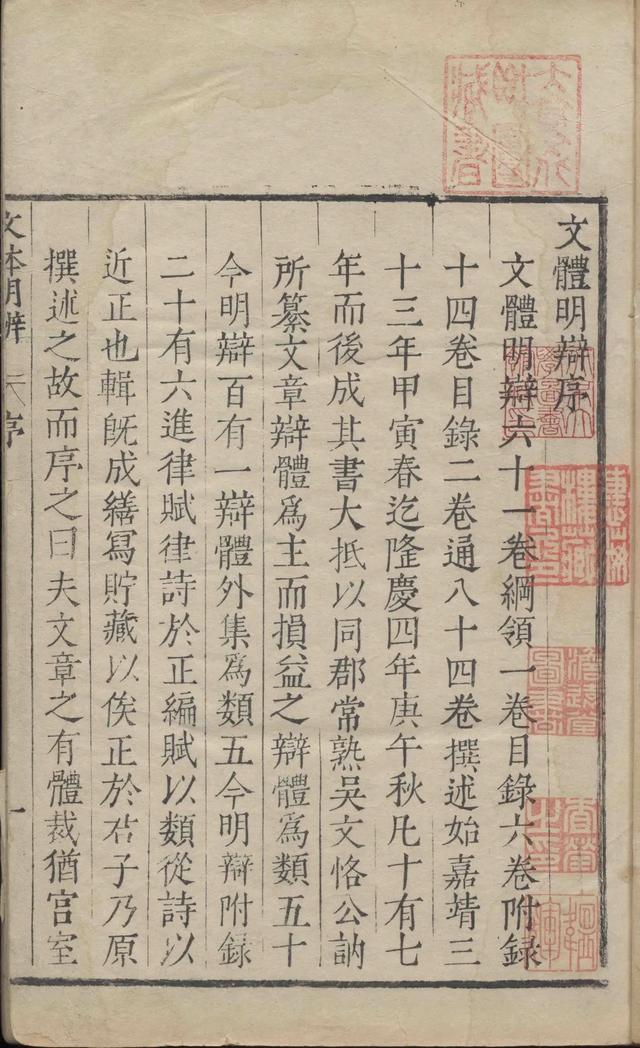 文體明辯序
文體明辯六十一卷綱領一卷目錄六卷附錄
十四卷目錄二卷通八十四卷撰述始嘉靖三
十三年甲寅春迄隆慶四年庚午秋凡十有七
年而後成其書大抵以同郡常熟吳文恪公訥
所纂文章辯體爲主而損益之辯體爲類五十
今明辯百有一辯體外集爲類五今明辯附錄
二十有六進律賦律詩於正編賦以類從詩以
近正也輯旣成繕寫貯藏以俟正於君子乃原
撰述之故而序之曰夫文章之有體裁猶宮室
文体明辨 序 一